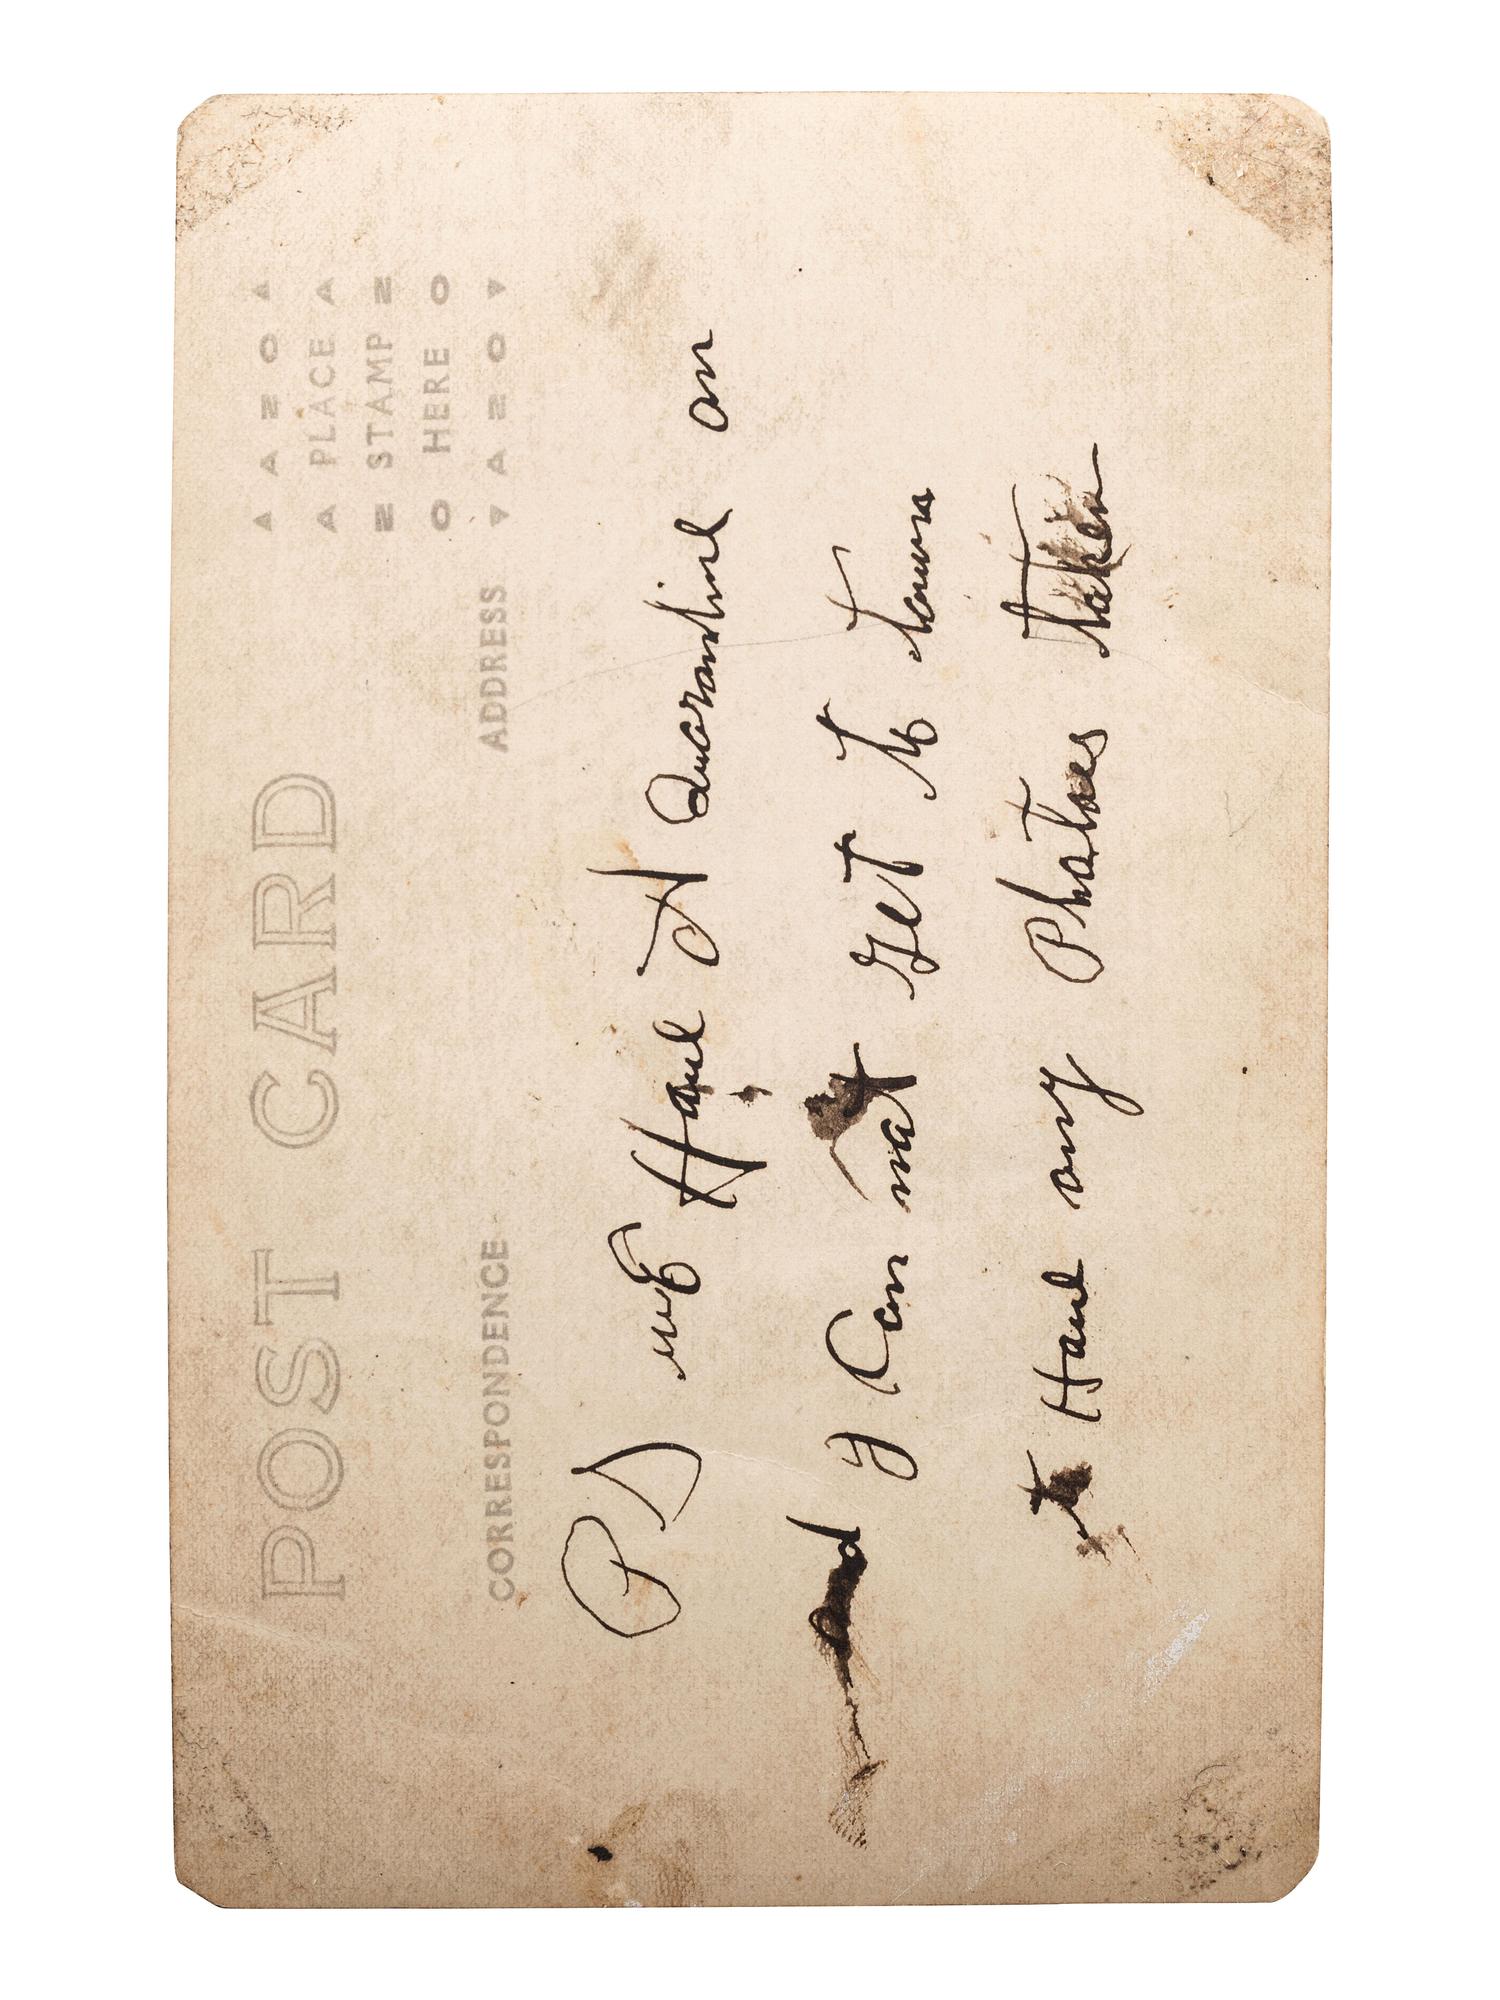 POST CARD
▲ A Z O ▲
A PLACE A
Z STAMP Z
O HERE O
▼ A Z O ▼
CORRESPONDENCE
ADDRESS
PS we Have A Quarantine on
and I Can not get to town
to Have any Photoes taken